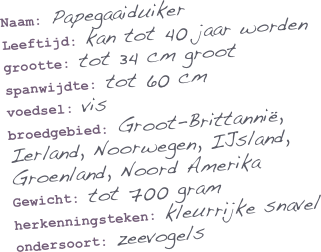 Naam: Papegaaiduiker
Leeftijd: kan tot 40 jaar worden
grootte: tot 34 cm groot
spanwijdte: tot 60 cm
voedsel: vis
broedgebied: Groot-Brittannië,
Ierland, Noorwegen, IJsland,
Groenland, Noord Amerika
Gewicht: tot 700 gram
herkenningsteken: kleurrijke snavel
ondersoort: zeevogels